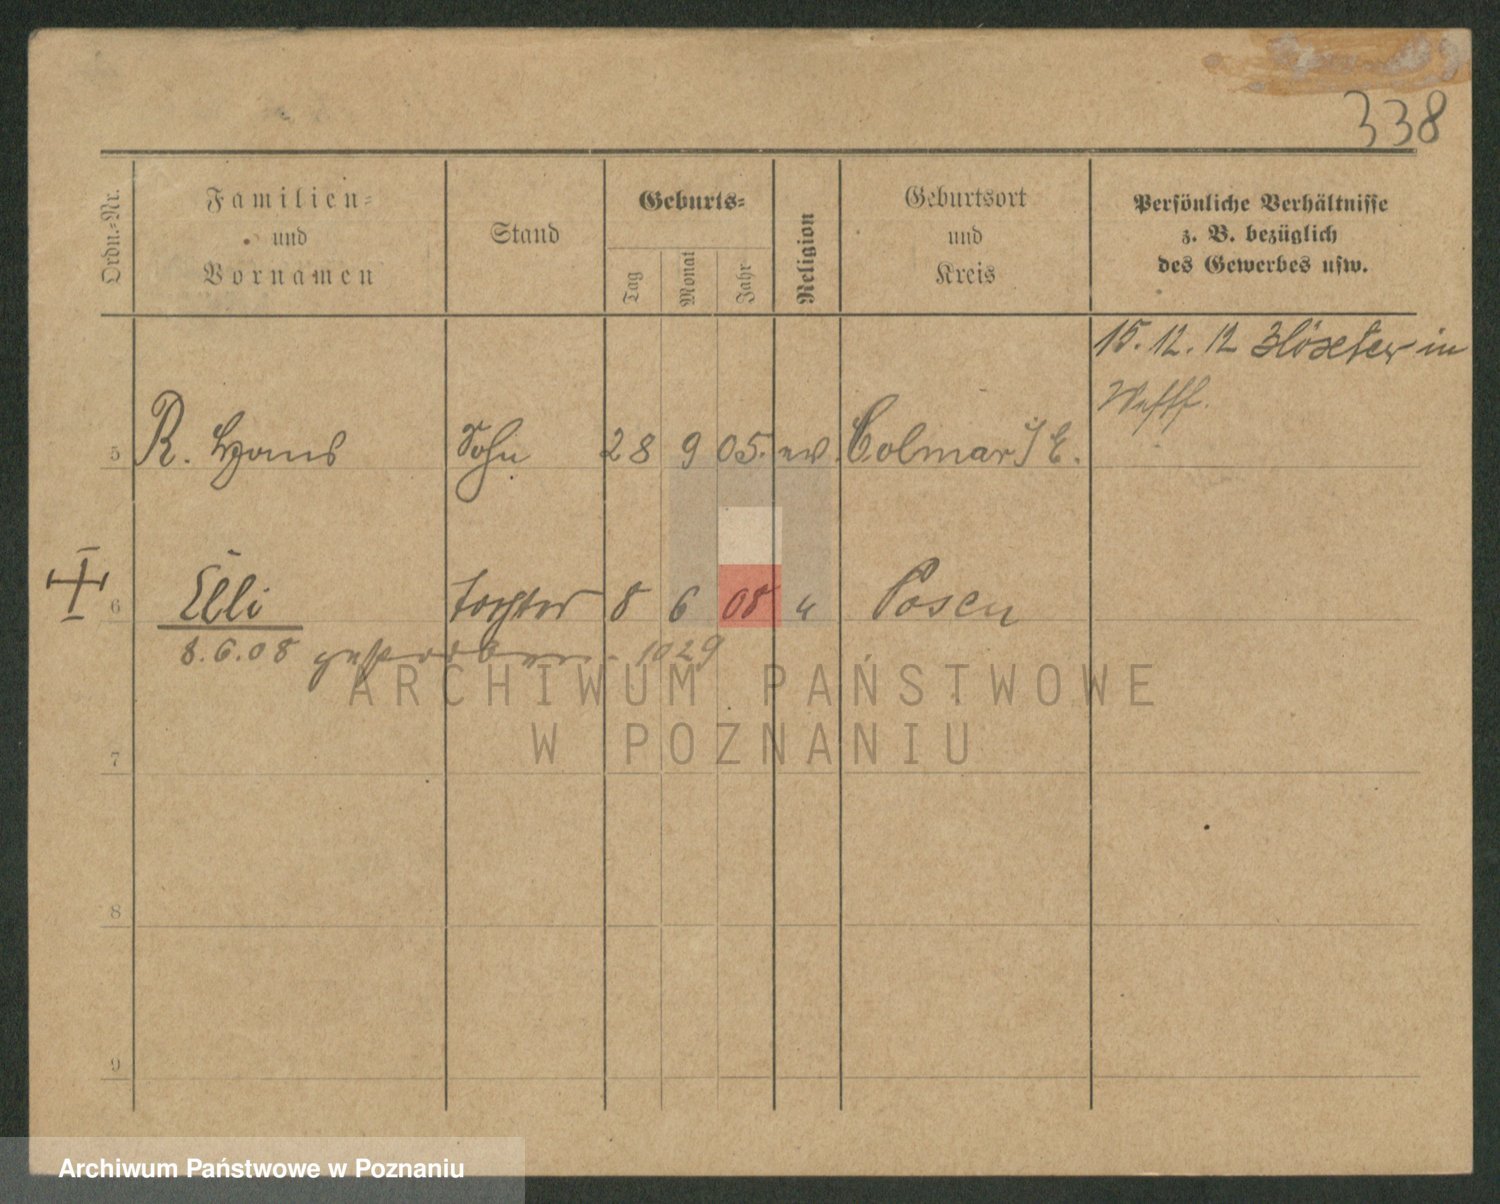 338
Ordn.-Nr.
Familien-
und
Vornamen
Stand
Geburts-
Tag
Monat
Jahr
Religion
Geburtsort
und
Kreis
Persönliche Verhältnisse
z. B. bezüglich
des Gewerbes usw.
15.12.12 in
Westf.
5 R. Hans Sohn 28 9 05. ev. Colmar i/E.
6 Elli Tochter 8 6 08 Posen
8.6.08 gestorben - 1029
7
8
9
ARCHIWUM PAŃSTWOWE
W POZNANIU
Archiwum Państwowe w Poznaniu